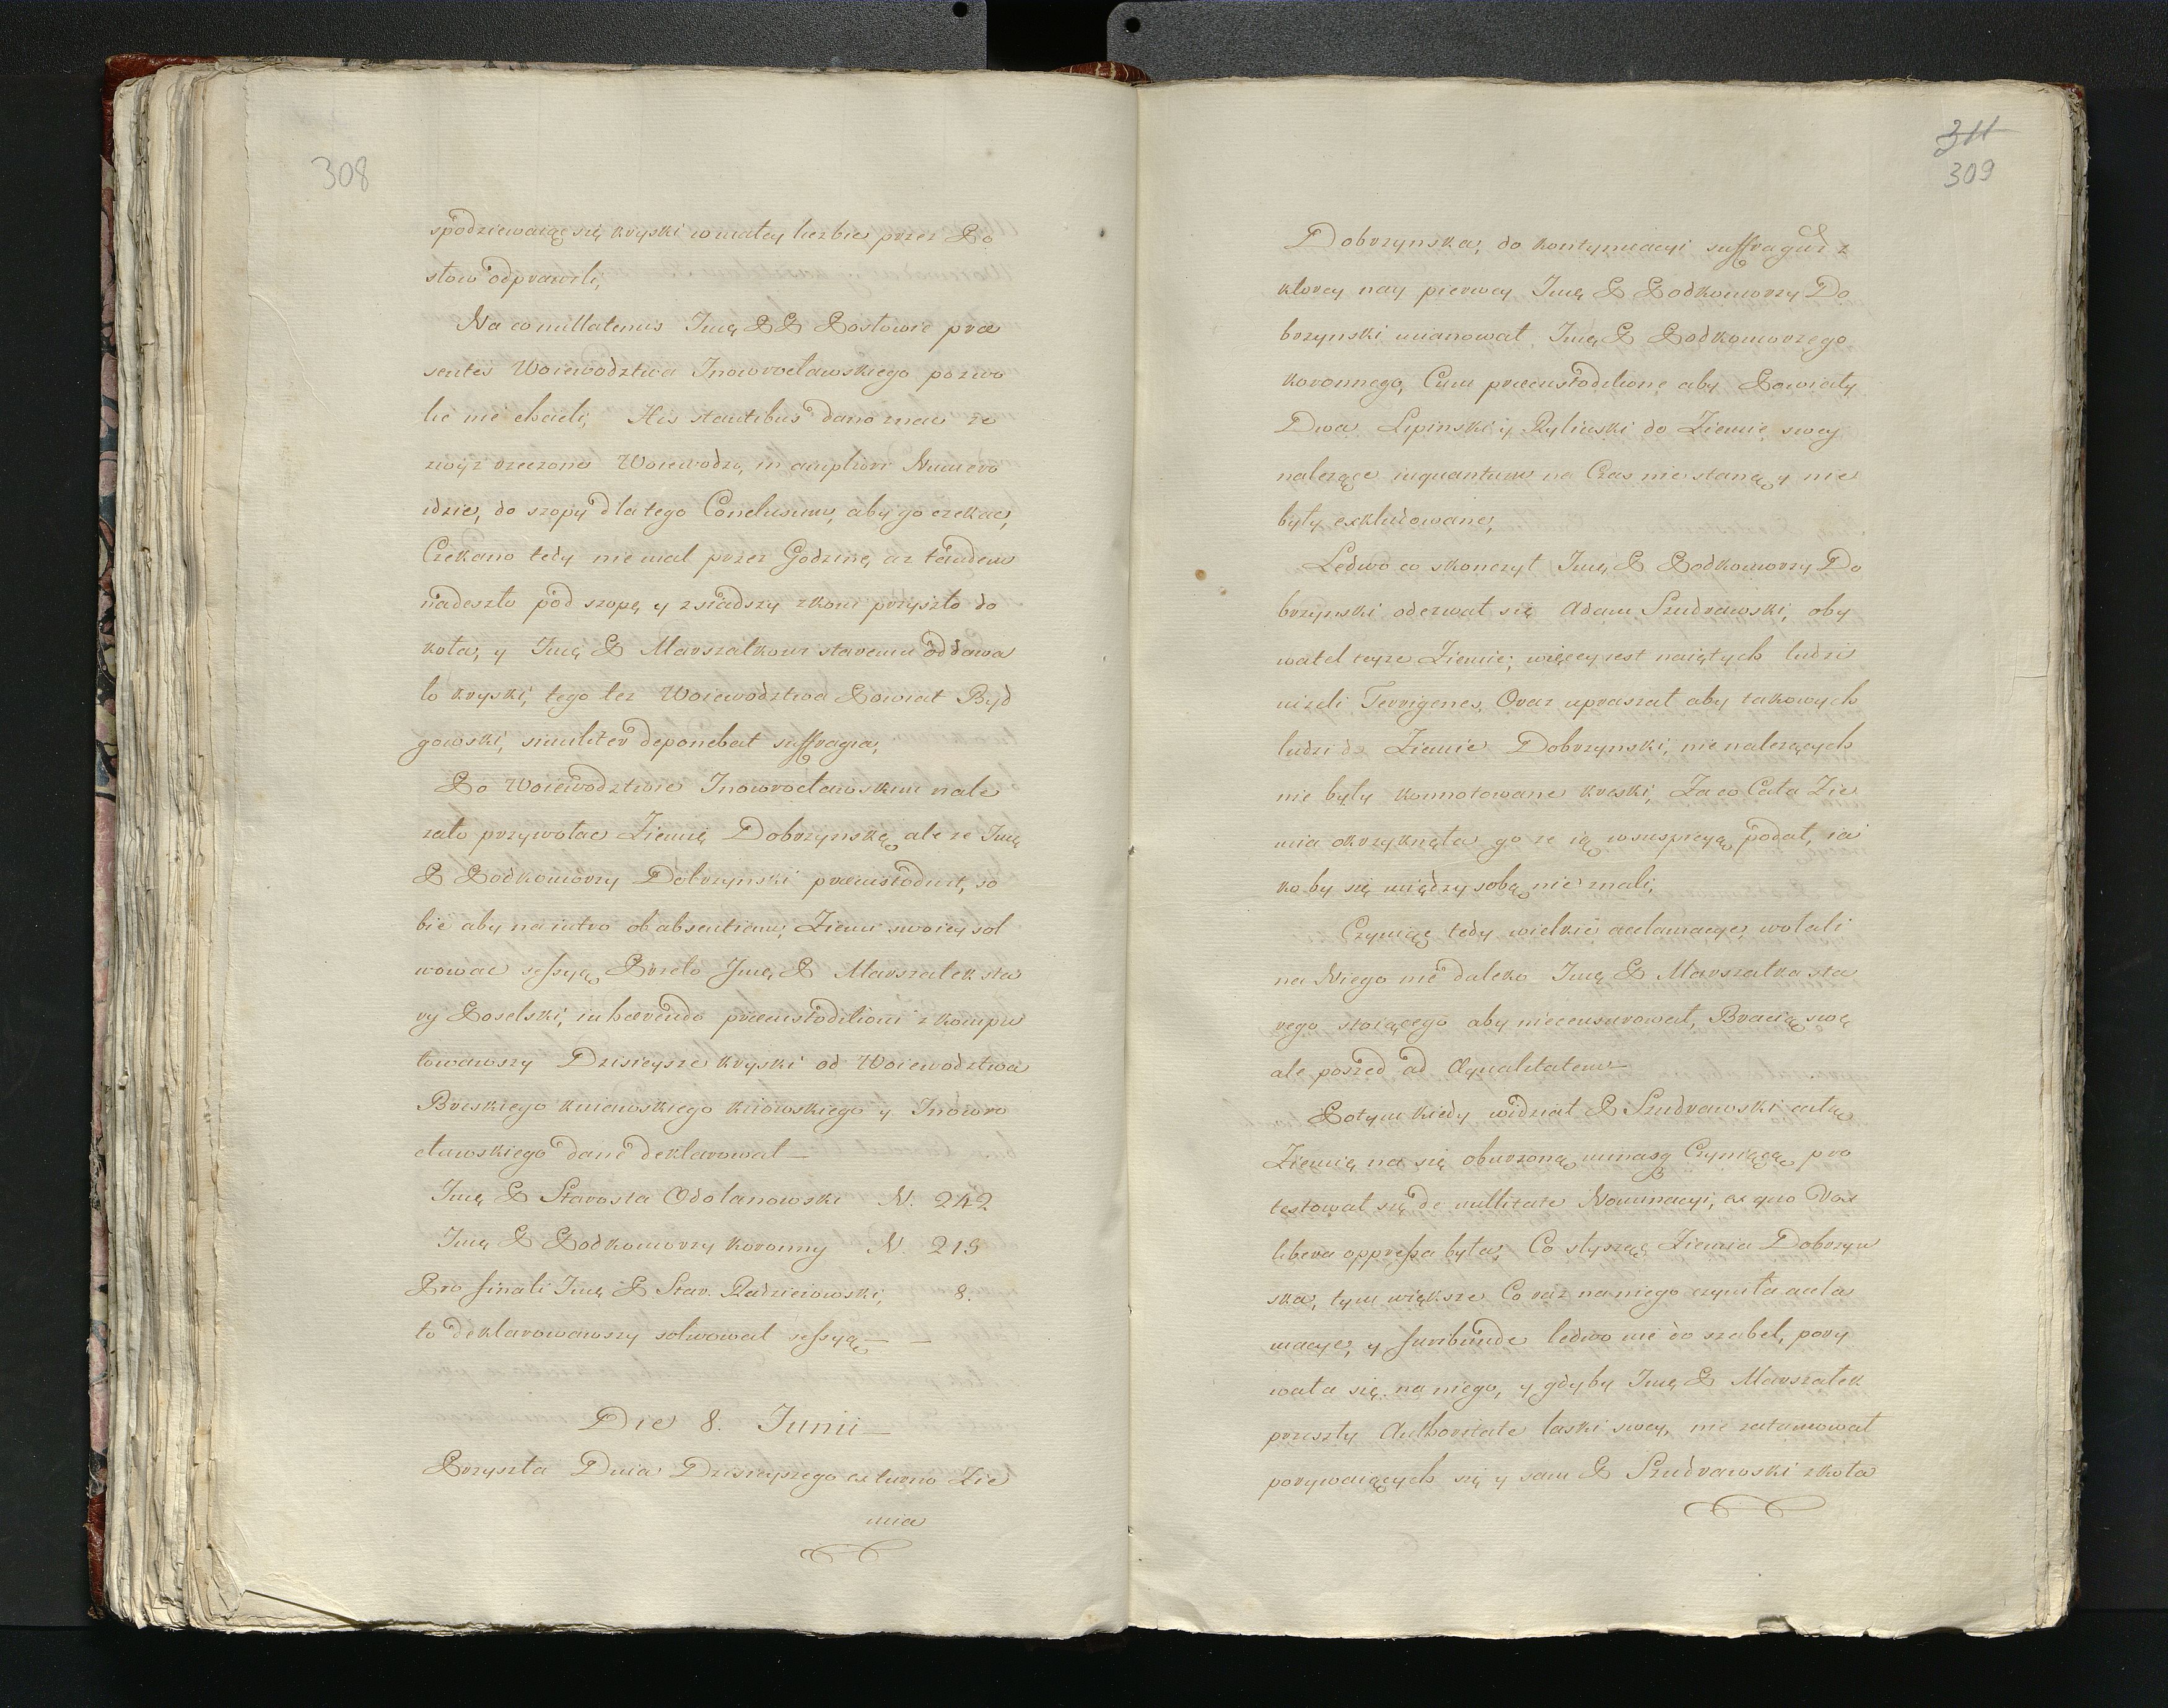 308
spodziewaiąc się kryski w małey liczbie przez Po
słow odprawili,
Na co nullatenus Imę PP Posłowie præ
sentes Woiewodztwa Inowrocławskiego pozwo
lić nie chcieli, His stantibus dano znać że
zwyż rzeczone Woiewodz: in ampliori Numero
idzie, do szopy dla tego Conclusum, aby go czekać,
Czekano tedy nie mal przez Godzinę, aż tandem
nadeszło pod szopę y zsiadszy z koni przyszło do
koła, y Imę P Marszałkowi staremu oddawa
ło kryski, tego też Woiewodztwa Powiat Byd
gowski, similiter deponebat suffragia,
Po Woiewodztwie Inowrocławskim nale
zało przywołać Ziemię Dobrzynską, ale że Imę
P Podkomorzy Dobrzynski præcustodivit, so
bie aby na iutro ob absentiam Ziemi swoiey sol
wować sessyą, Przeto Imę P Marszałek sta
ry Poselski, inhærendo præcustoditioni zkompu
towawszy Dzisieysze kryski od Woiewodztwa
Brzskiego kuiawskiego kiiowskiego y Inowro
cławskiego dane deklarował —
Imę P Starosta Odolanowski N. 242
Imę P Podkomorzy koronny N. 219
Pro finali Imę P Star. Radzieiowski, 8.
to deklarowawszy solwował sessyą, — —
Die 8. Junii —
Przyszła Dnia Dzisieyszego ex turno Zie
mia
311
309
Dobrzynska, do kontynuacyi suffragiis z
ktorey nay pierwey Imę P Podkomorzy Do
brzynski mianował Imę P Podkomorzego
koronnego, Cum præcustoditione aby Powiaty
Dwa Lipinski y Rypinski do Ziemie swey
nalezące inquantum na Czas nie staną, y nie
były exkludowane,
Ledwo co skonczył Imę P Podkomorzy Do
brzynski odezwał się Adam Szudrawski, oby
watel teyże Ziemie; więcey iest naiętych ludzi
niżeli Terrigenes, Oraz upraszał aby takowych
ludzi do Ziemie Dobrzynski, nie nalezących
nie były konnotowane kreski, Za co Cała Zie
mia okrzyknęła go że ią w suspicyą podał, ia
ko by się między sobą nie znali,
Czyniąc tedy wielkie acclamacye, wołali
na Niego nie daleko Imę P Marszałka sta
rego stoiącego aby nie censurował, Bracią swę
ale poszed ad Æqualitatem —
Potym kiedy widział P Szudrawski całą
Ziemię na się oburzoną, minasq Czyniącą, pro
testował się de nullitate Nominacyi, ex quo Vox
libera oppressa była, Co słysząc Ziemia Dobrzyn
ska, tym większe Co raz na niego czyniła accla
macye, y furibunde ledwo nie do szabel, pory
wała się na niego, y gdyby Imę P Marszałek
przeszły Authoritate laski swey, nie zatamował
porywaiących się y sam P Szudrawski z koła